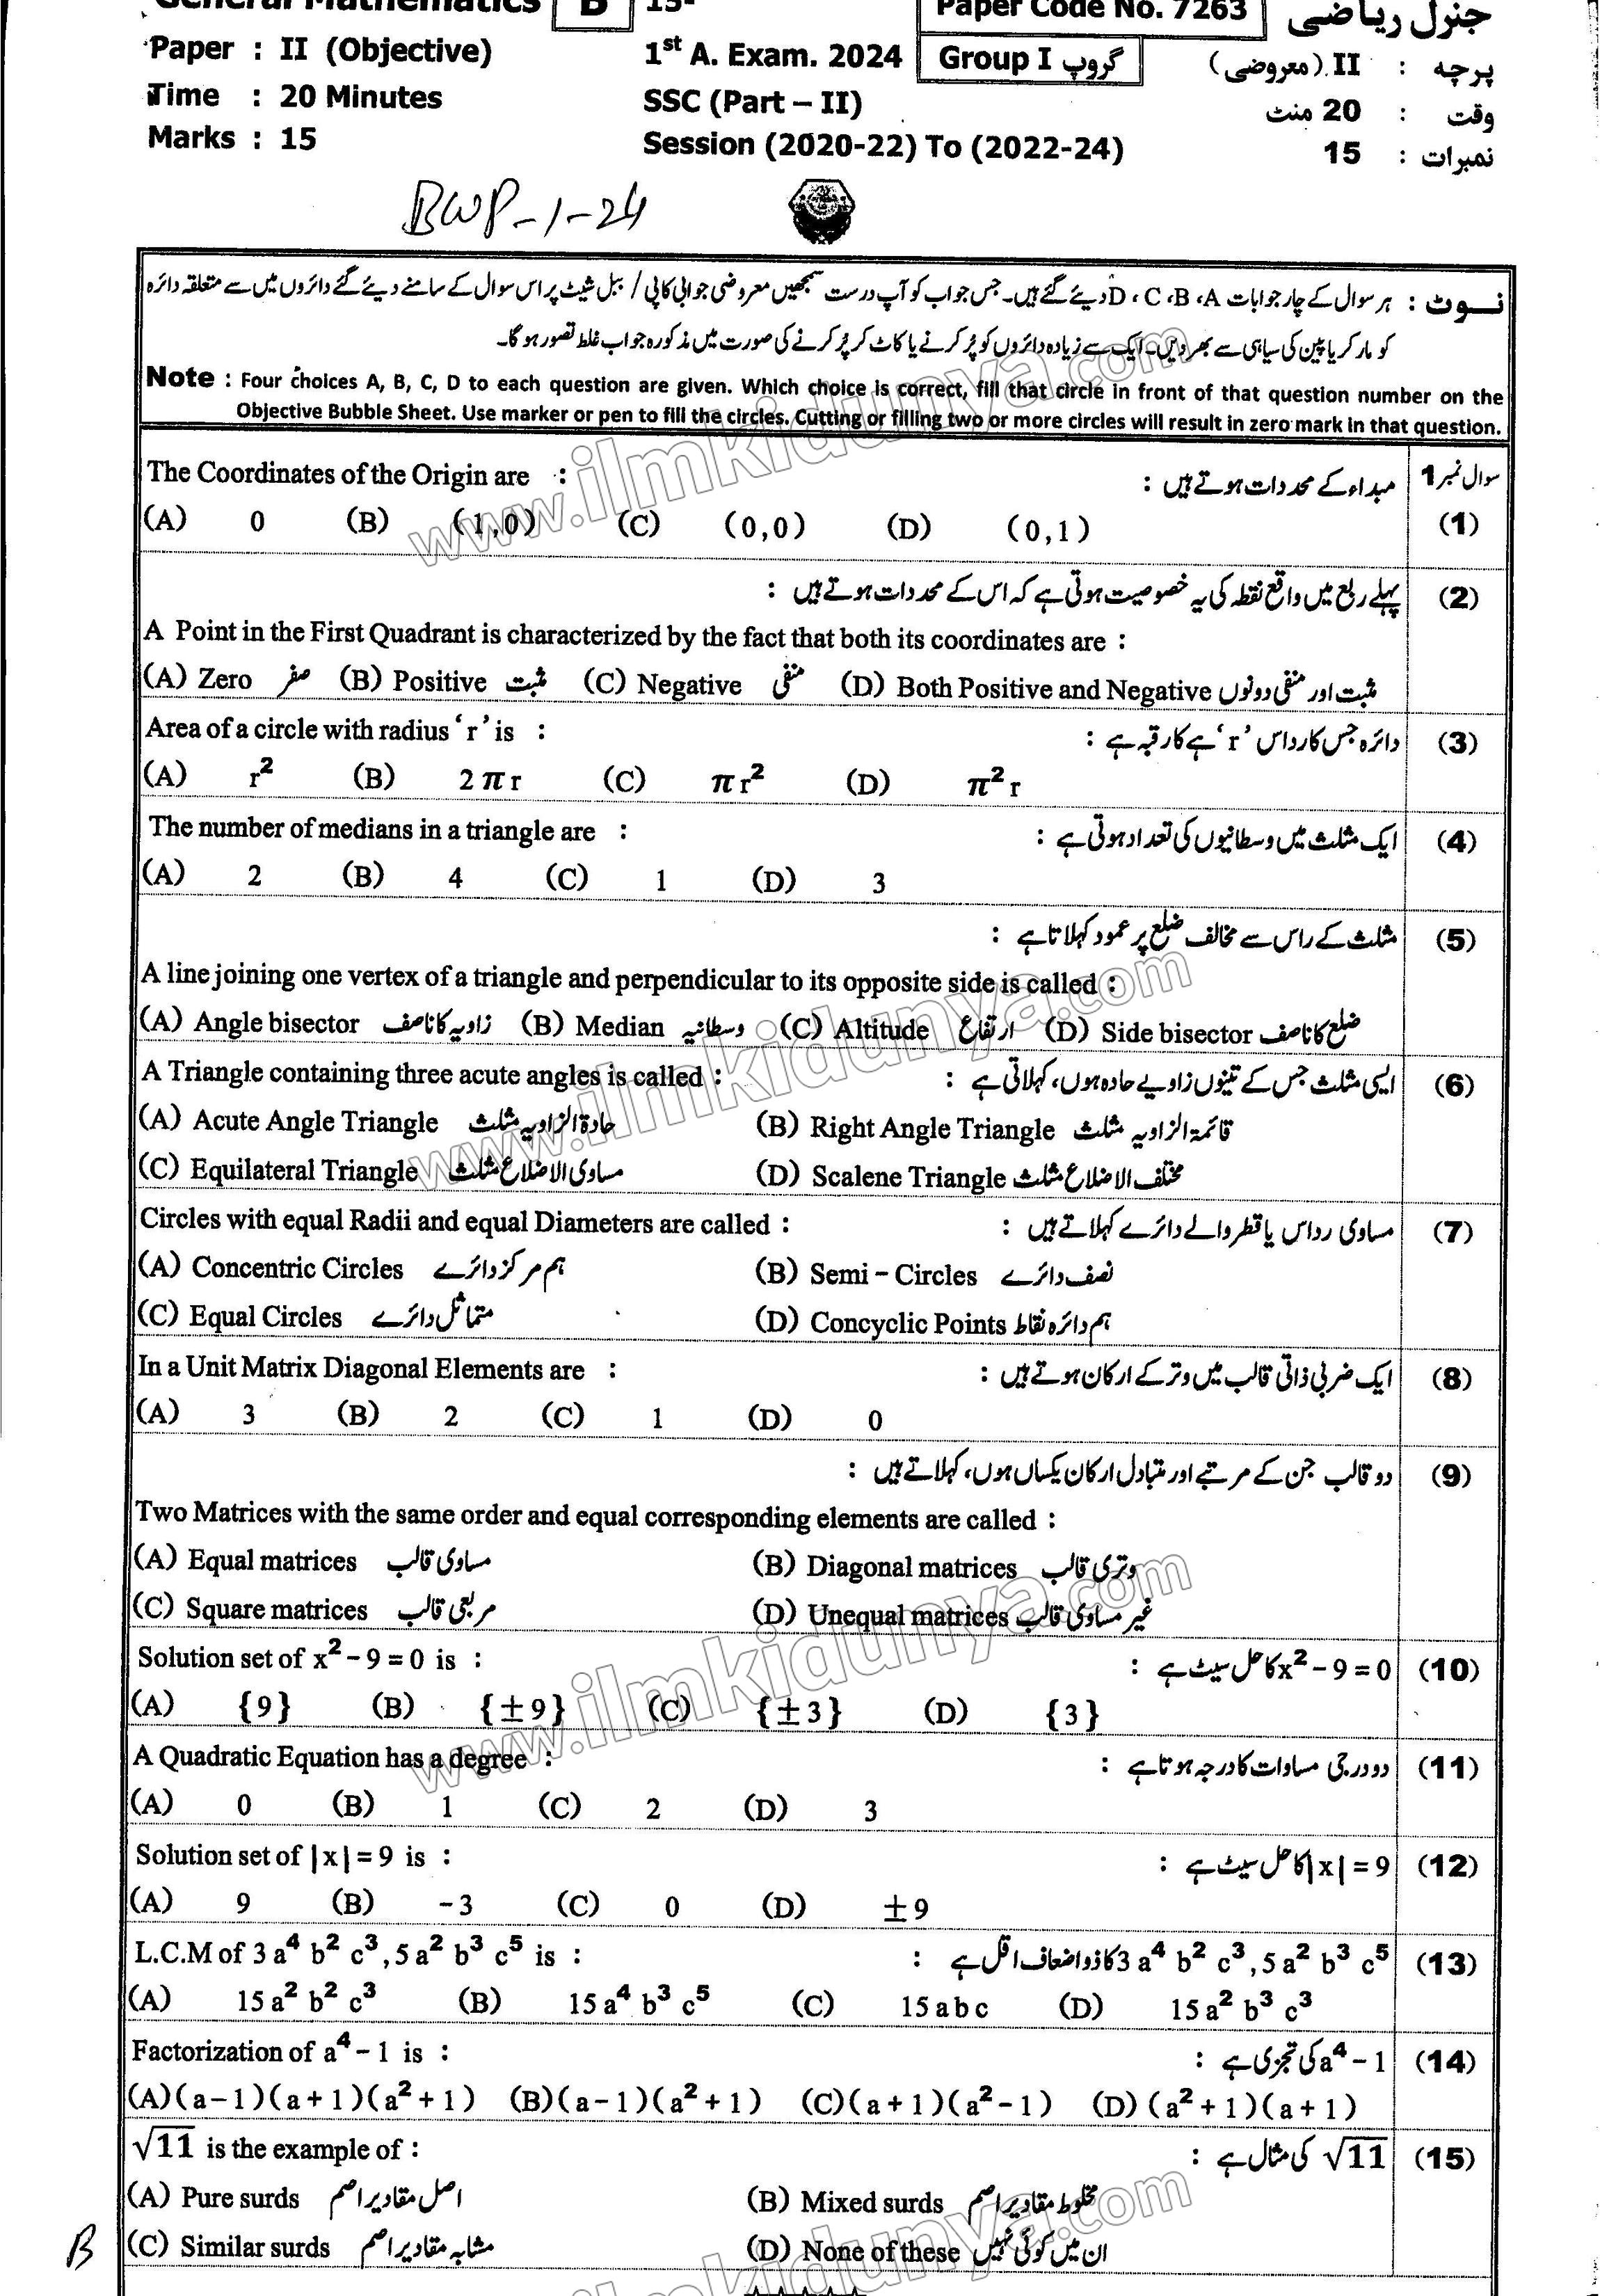 General Mathematics B 15- Paper Code No. 7263 جنرل ریاضی
Paper : II (Objective) 1st A. Exam. 2024 Group I گروپ پرچہ : II (معروضی)
Time : 20 Minutes SSC (Part – II) وقت : 20 منٹ
Marks : 15 Session (2020-22) To (2022-24) نمبرات : 15
BWP-1-24
نوٹ : ہر سوال کے چار جوابات D ، C ، B ، A دیئے گئے ہیں۔ جس جواب کو آپ درست سمجھیں معروضی جوابی کاپی / ببل شیٹ پر اس سوال کے سامنے دیئے گئے دائروں میں سے متعلقہ دائرہ
کو مارکر یا پین کی سیاہی سے بھر دیں۔ ایک سے زیادہ دائروں کو پُر کرنے یا کاٹ کر پُر کرنے کی صورت میں مذکورہ جواب غلط تصور ہو گا۔
Note : Four choices A, B, C, D to each question are given. Which choice is correct, fill that circle in front of that question number on the
Objective Bubble Sheet. Use marker or pen to fill the circles. Cutting or filling two or more circles will result in zero mark in that question.
The Coordinates of the Origin are : مبداء کے محددات ہوتے ہیں : سوال نمبر 1
(A) 0 (B) (1,0) (C) (0,0) (D) (0,1) (1)
پہلے ربع میں واقع نقطہ کی یہ خصوصیت ہوتی ہے کہ اس کے محددات ہوتے ہیں : (2)
A Point in the First Quadrant is characterized by the fact that both its coordinates are :
(A) Zero صفر (B) Positive مثبت (C) Negative منفی (D) Both Positive and Negative مثبت اور منفی دونوں
Area of a circle with radius ‘r’ is : دائرہ جس کا رداس ‘r’ ہے کا رقبہ ہے : (3)
(A) r² (B) 2πr (C) πr² (D) π²r
The number of medians in a triangle are : ایک مثلث میں وسطانیوں کی تعداد ہوتی ہے : (4)
(A) 2 (B) 4 (C) 1 (D) 3
مثلث کے راس سے مخالف ضلع پر عمود کہلاتا ہے : (5)
A line joining one vertex of a triangle and perpendicular to its opposite side is called :
(A) Angle bisector زاویہ کا ناصف (B) Median وسطانیہ (C) Altitude ارتفاع (D) Side bisector ضلع کا ناصف
A Triangle containing three acute angles is called : ایسی مثلث جس کے تینوں زاویے حادہ ہوں، کہلاتی ہے : (6)
(A) Acute Angle Triangle حادۃ الزاویہ مثلث (B) Right Angle Triangle قائمۃ الزاویہ مثلث
(C) Equilateral Triangle مساوی الاضلاع مثلث (D) Scalene Triangle مختلف الاضلاع مثلث
Circles with equal Radii and equal Diameters are called : مساوی رداس یا قطر والے دائرے کہلاتے ہیں : (7)
(A) Concentric Circles ہم مرکز دائرے (B) Semi – Circles نصف دائرے
(C) Equal Circles متماثل دائرے (D) Concyclic Points ہم دائرہ نقاط
In a Unit Matrix Diagonal Elements are : ایک ضربی ذاتی قالب میں وتر کے ارکان ہوتے ہیں : (8)
(A) 3 (B) 2 (C) 1 (D) 0
دو قالب جن کے مرتبے اور متبادل ارکان یکساں ہوں، کہلاتے ہیں : (9)
Two Matrices with the same order and equal corresponding elements are called :
(A) Equal matrices مساوی قالب (B) Diagonal matrices وتری قالب
(C) Square matrices مربعی قالب (D) Unequal matrices غیر مساوی قالب
Solution set of x² – 9 = 0 is : x² – 9 = 0 کا حل سیٹ ہے : (10)
(A) {9} (B) {±9} (C) {±3} (D) {3}
A Quadratic Equation has a degree : دو درجی مساوات کا درجہ ہوتا ہے : (11)
(A) 0 (B) 1 (C) 2 (D) 3
Solution set of |x| = 9 is : |x| = 9 کا حل سیٹ ہے : (12)
(A) 9 (B) –3 (C) 0 (D) ±9
L.C.M of 3 a⁴ b² c³ , 5 a² b³ c⁵ is : 3 a⁴ b² c³ , 5 a² b³ c⁵ کا ذواضعاف اقل ہے : (13)
(A) 15 a² b² c³ (B) 15 a⁴ b³ c⁵ (C) 15 a b c (D) 15 a² b³ c³
Factorization of a⁴ – 1 is : a⁴ – 1 کی تجزی ہے : (14)
(A) (a–1)(a+1)(a²+1) (B) (a–1)(a²+1) (C) (a+1)(a²–1) (D) (a²+1)(a+1)
√11 is the example of : √11 کی مثال ہے : (15)
(A) Pure surds اصل مقادیر اصم (B) Mixed surds مخلوط مقادیر اصم
B (C) Similar surds مشابہ مقادیر اصم (D) None of these ان میں کوئی نہیں
www.ilmkidunya.com
www.ilmkidunya.com
www.ilmkidunya.com
www.ilmkidunya.com